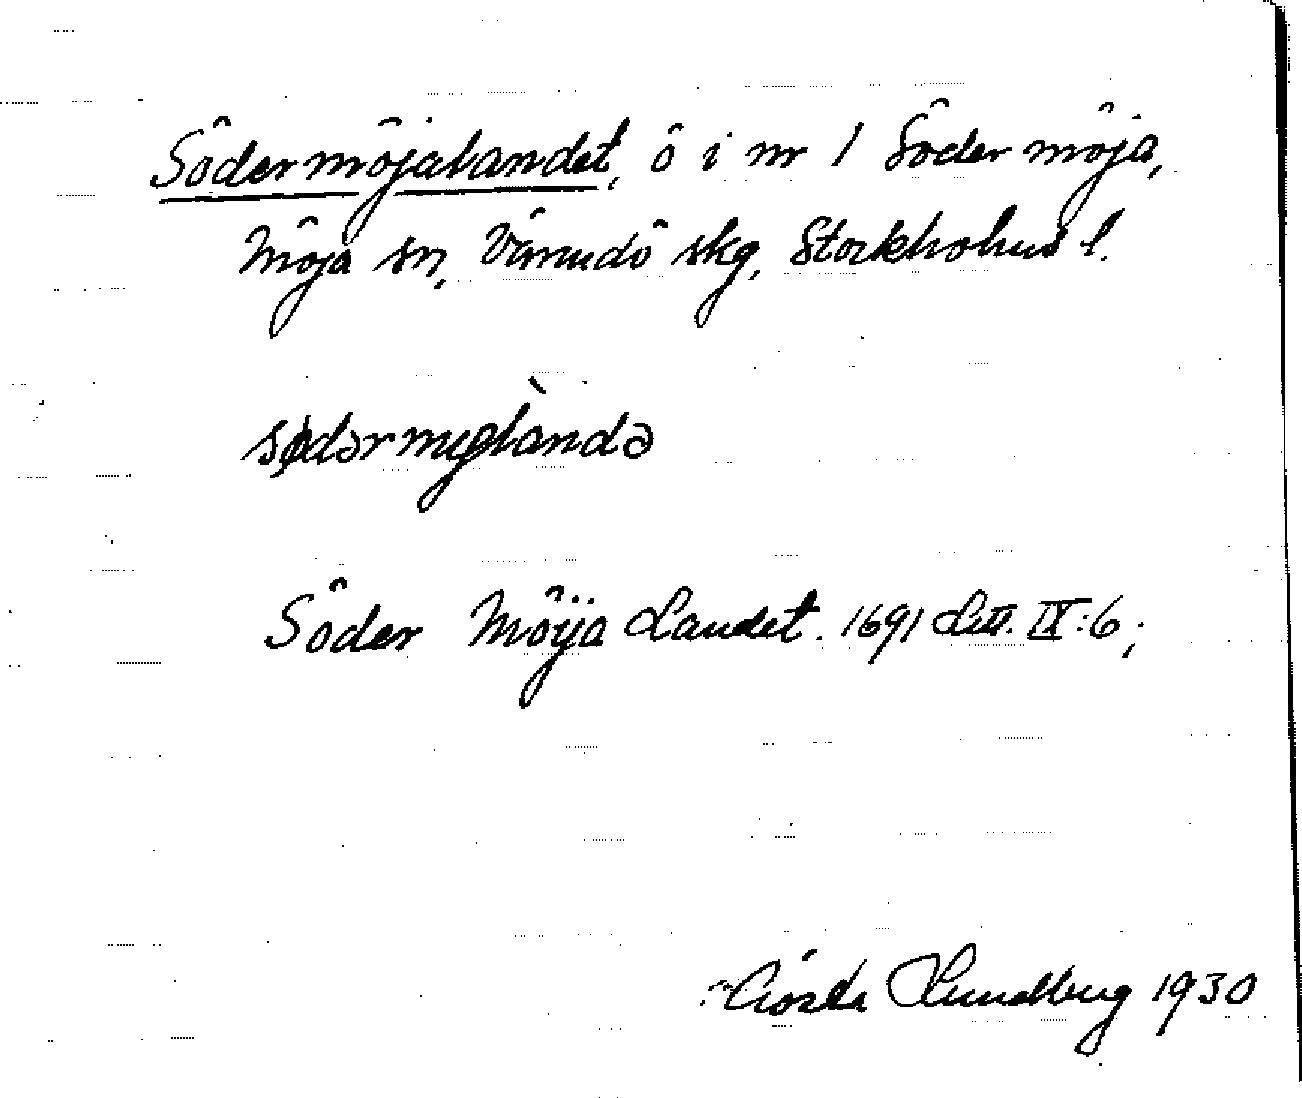 Södermöjalandet, ö i nr 1 Södermöja,
Möja sn, Värmdö skg, Stockholms l.
sødərmyglàndə
Söder Möija Landet. 1691 LSS. IX:6;
Gösta Lundberg 1930